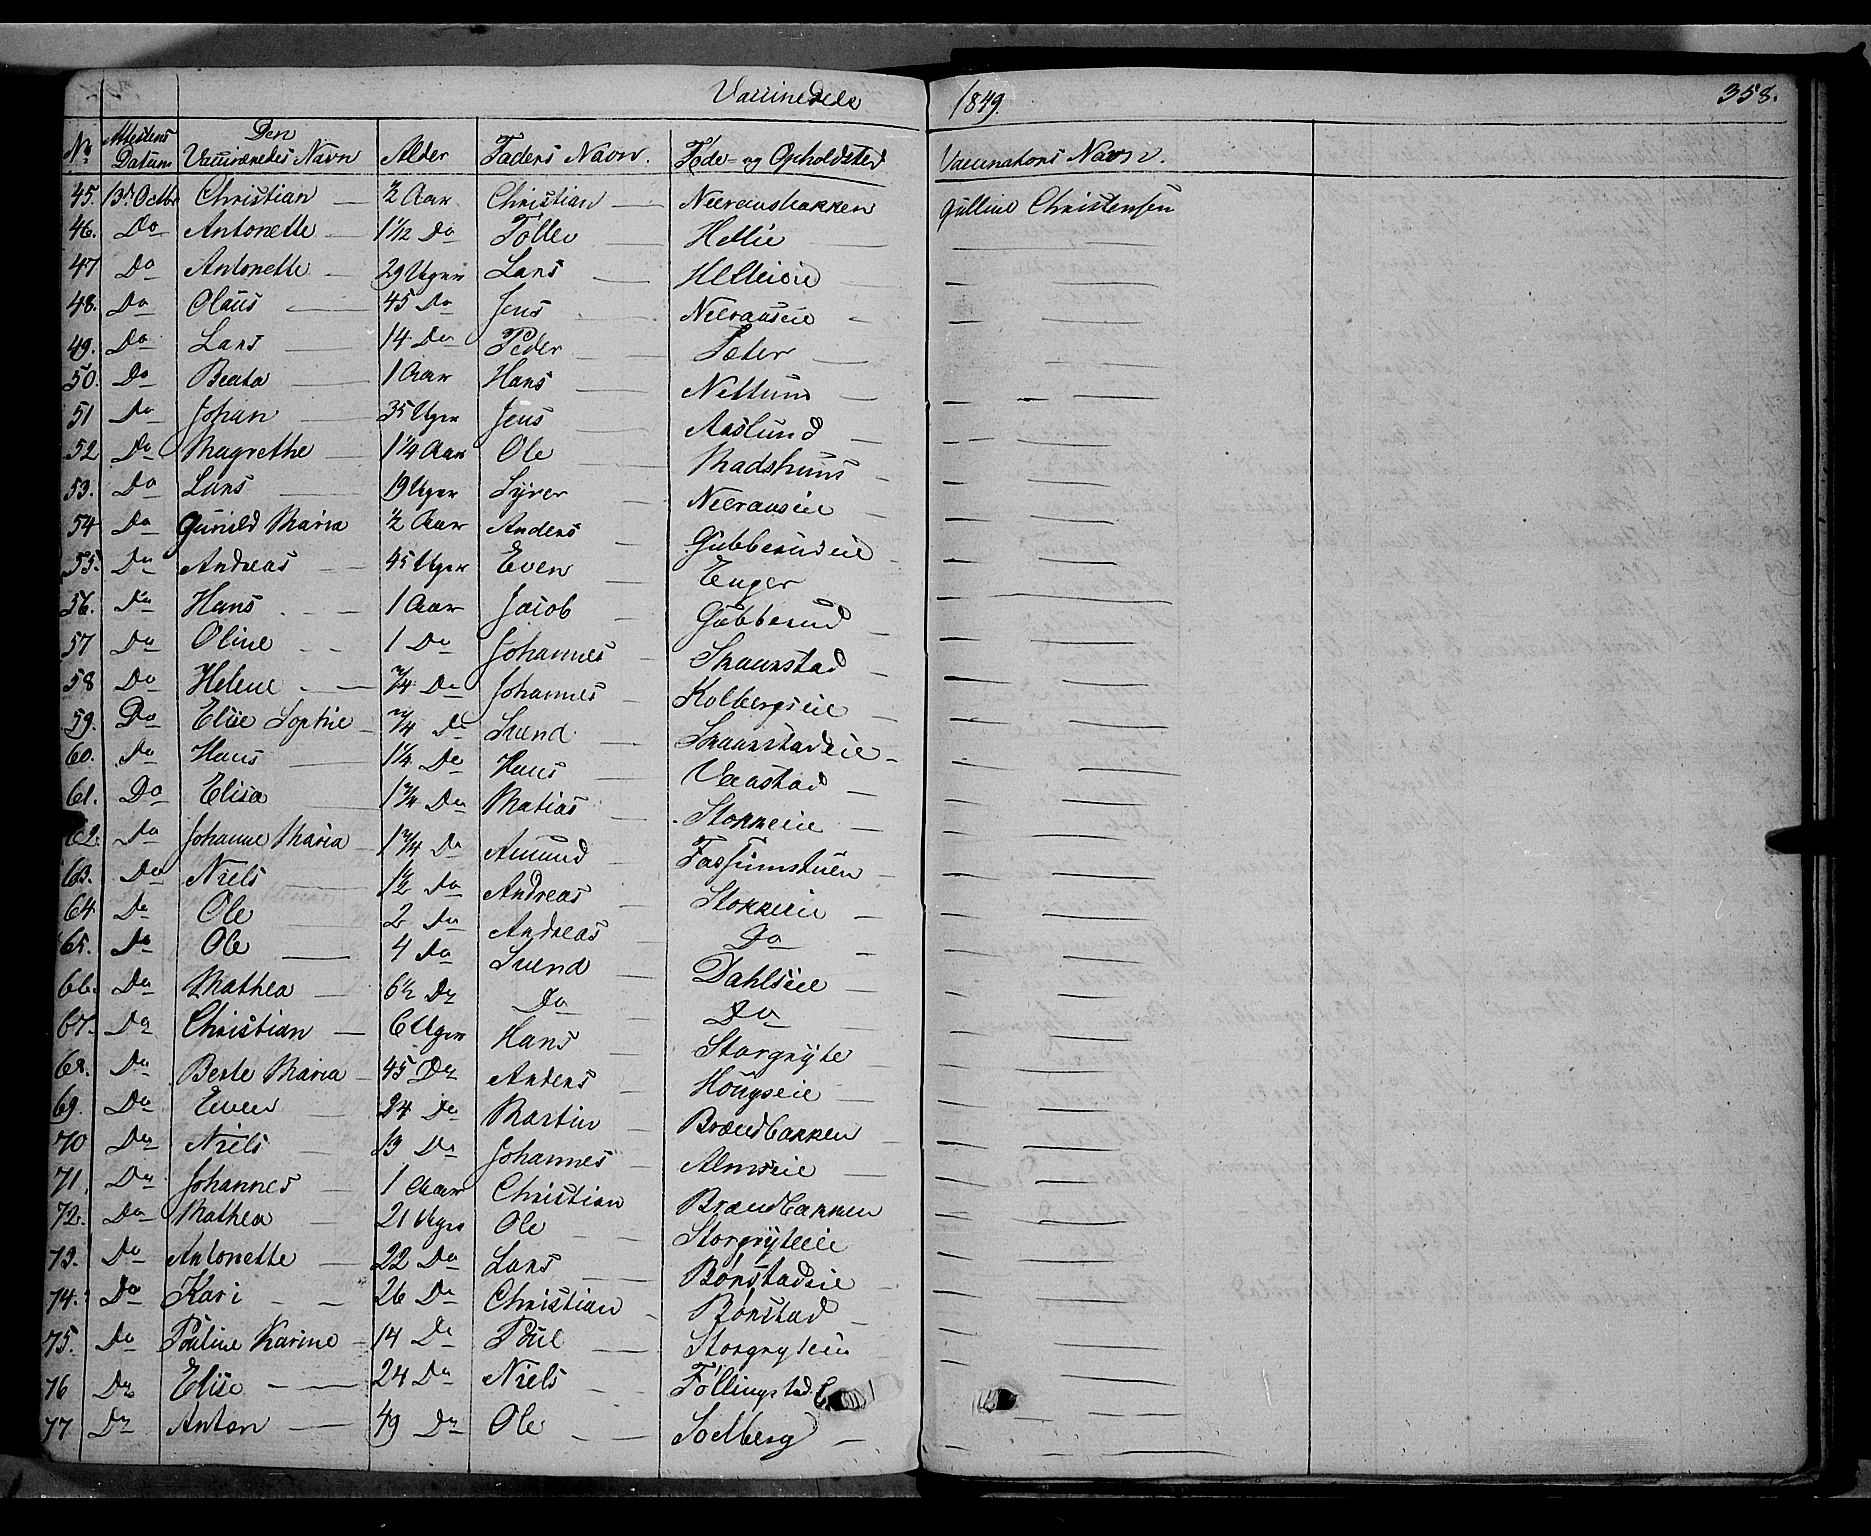 Vaccinerede 1849. 358.
No Attestens Datum Den Vaccinænedes Navn Alder Faders Navn. Føde- og Opholdsted Vaccinatørs Navn.
45. 13d Octbr Christian ½ Aar Christian Neeraasbakken Gulline Christensen
46. Do Antonette 1½ Do Tollev Hellie
47 Do Antonette 29 Uger Lars Hellieie
48. Do Olaus 45 Do Jens Neeraaseie
49. Do Lars 14 Do Peder Sæter
50. Do Beata 1 Aar Hans Nettum
51 Do Johan 35 Uger Jens Aaslund
52 Do Magrethe 1¼ Aar Ole Madshuus
53. Do Lars 19 Uger Syver Neeraaseie
54 Do Gunild Maria ½ Aar Anders Gubberudeie
55. Do Andreas 45 Uger Even Enger
56. Do Hans 1 Aar Jacob Gubberud
57 Do Oline 1 Do Johannes Skaarstad
58 Do Helene ¾ Do Johannes Kolbergseie
59. Do Elise Sophie ¾ Do Svend Skaarstadeie
60. Do Hans 1¼ Do Hans Vaastad
61. Do Elisa 1¾ Do Matias Stokkeie
62. Do Johanne Maria 1¾ Do Amund Fossumstuen
63. Do Niels 1½ Do Andreas Stokkeie
64 Do Ole 2 Do Andreas Do
65. Do Ole 4 Do Svend Dahlseie
66. Do Mathea 6½ Do Do Do
67. Do Christian 6 Uger Hans Storgryte
68. Do Berte Maria 45 Do Anders Hougseie
69. Do Even 24 Do Martin Brændbakken
70 Do Niels 13 Do Johannes Almseie
71. Do Johannes 1 Aar Christian Brændbakken
72. Do Mathea 21 Uger Ole Storgryteie
73. Do Antonette 22 Do Lars Børstadeie
74. Do Kari 26 Do Christian Børstad
75. Do Pouline Karine 14 Do Poul Storgryteie
76 Do Elise 24 Do Niels Føllingstad
77 Do Anton 49 Do Ole Solberg